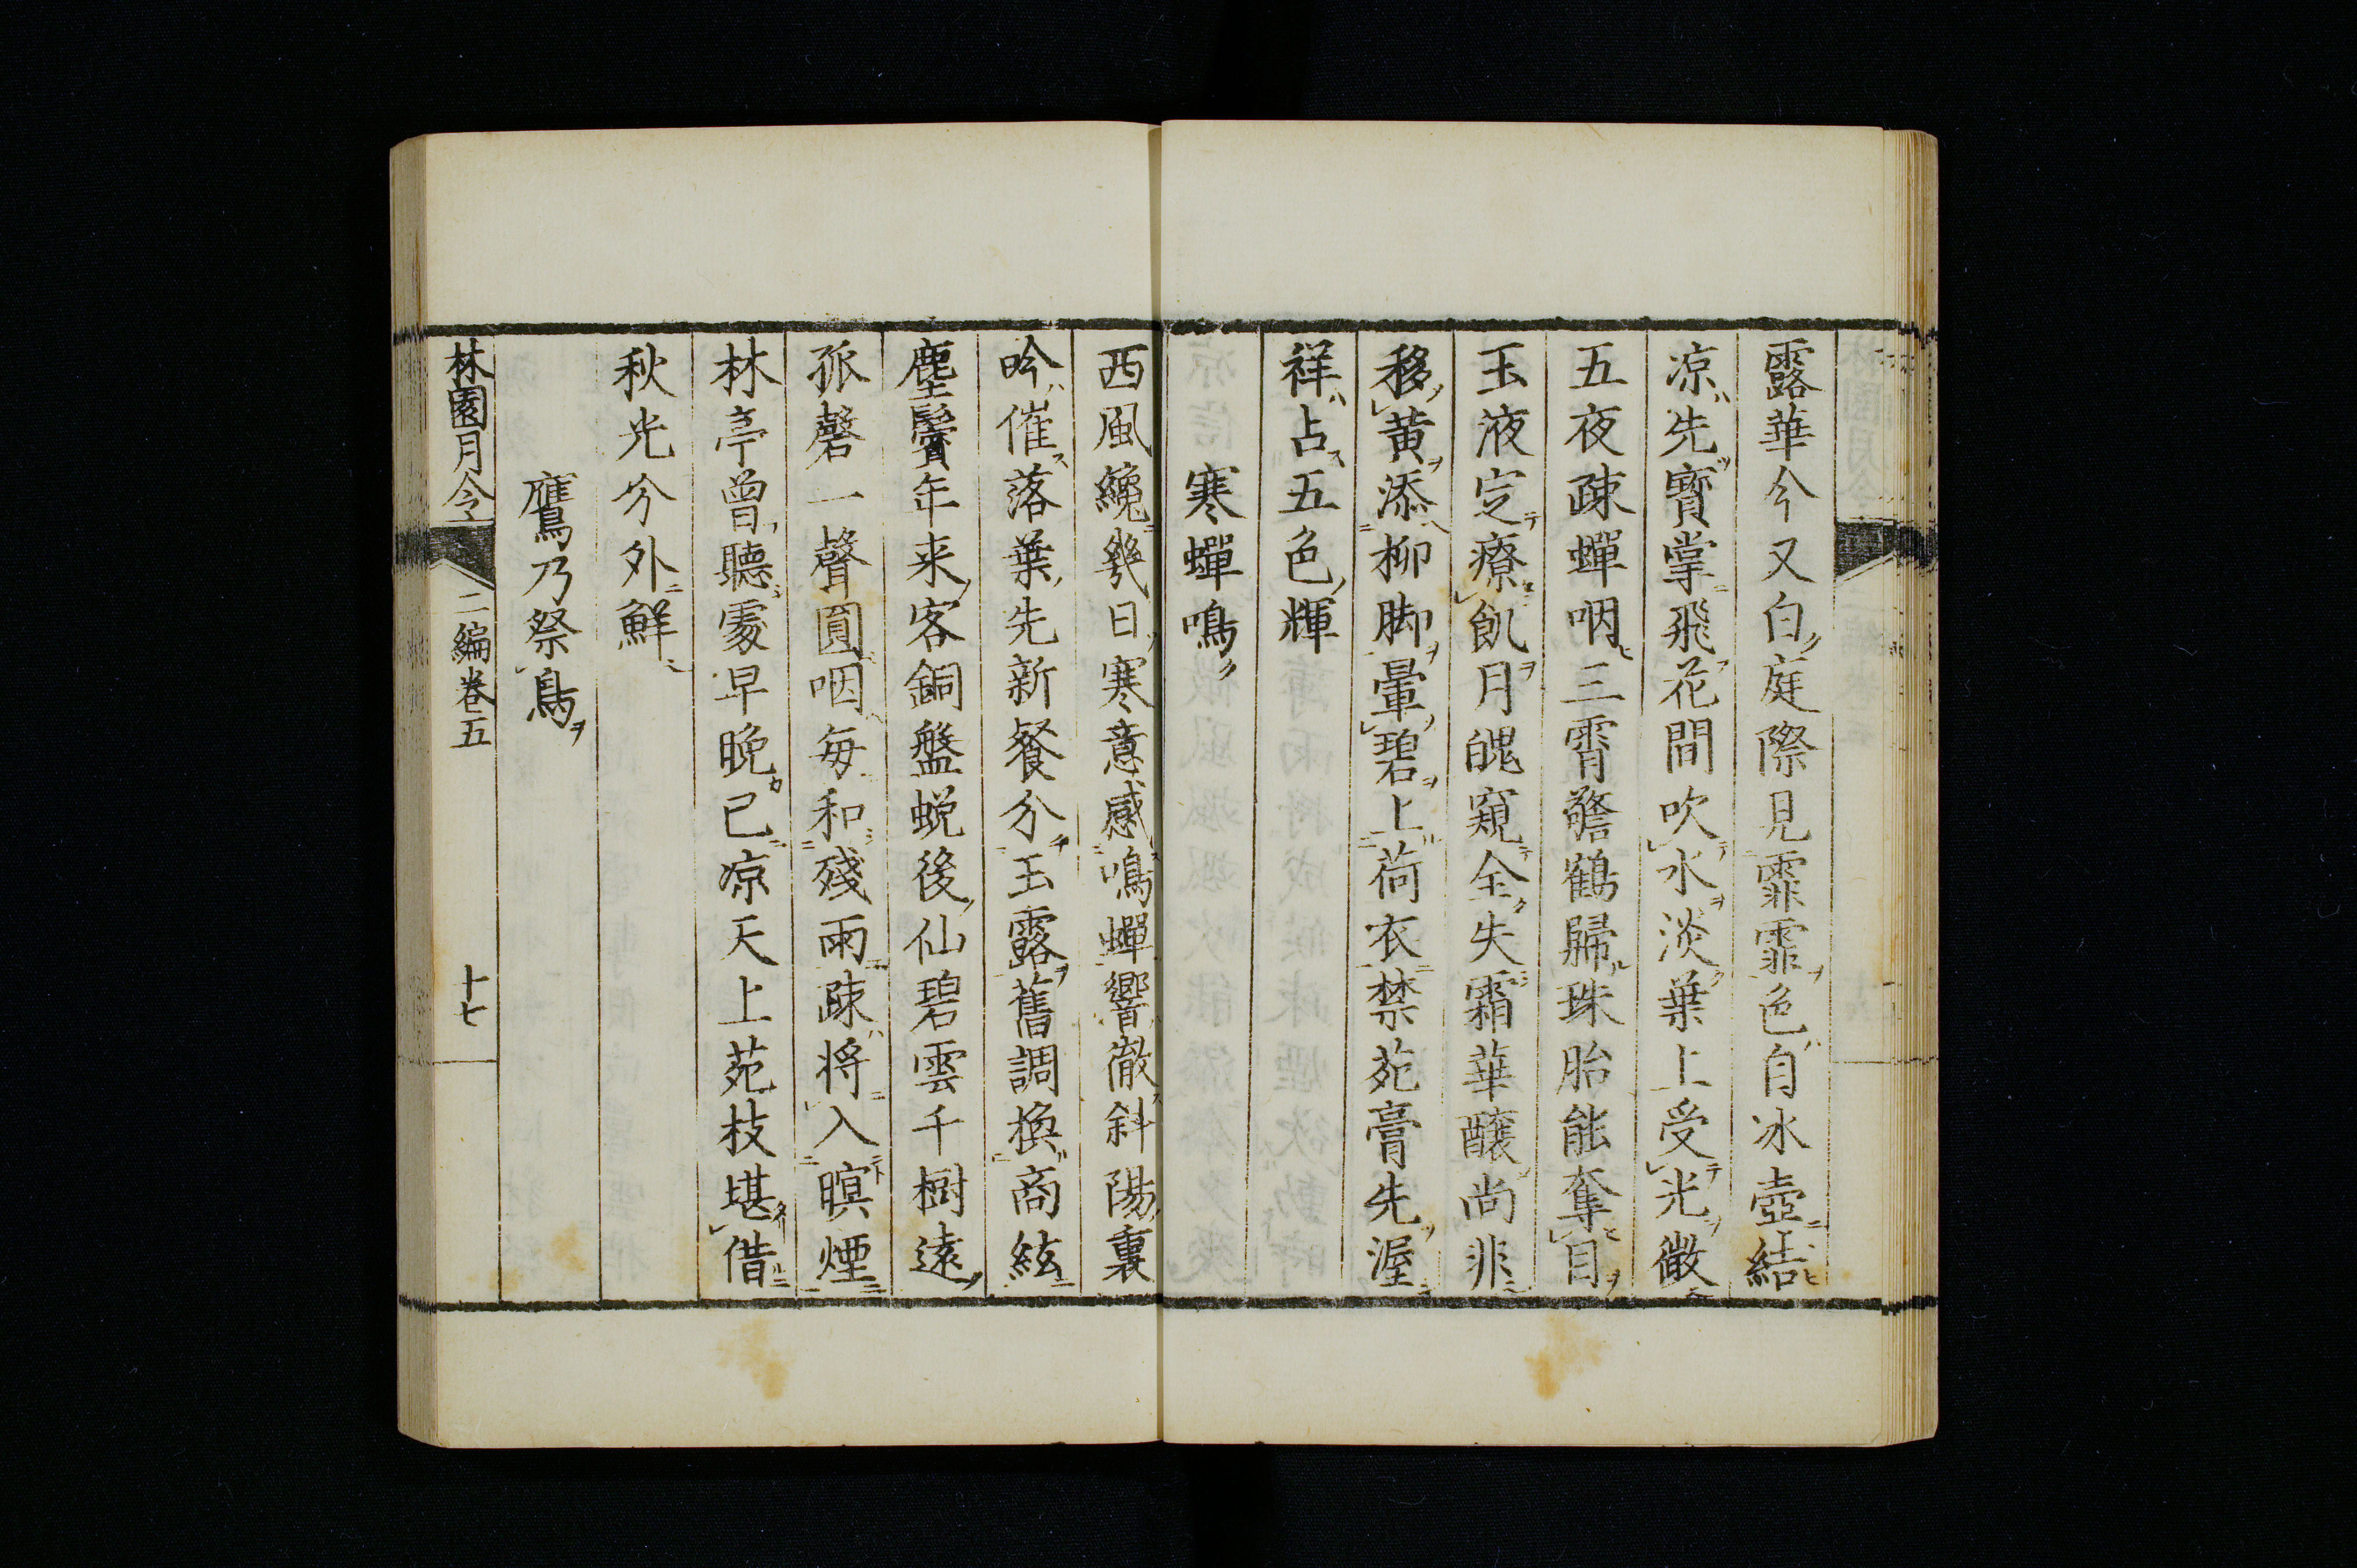 露華今又白庭際見霏霏色自冰壺結
凉先寳掌飛花間吹水淡葉上受光微
五夜疎蟬咽三霄警鶴歸珠胎能奪目
玉液定療飢月魄窺全失霜華釀尚非
移黄添柳脚暈碧上荷衣禁苑膏先渥
祥占五色輝
寒蟬鳴
西風纔幾日寒意感鳴蟬響徹斜陽裏
吟催落葉先新餐分玉露舊調換商絃
塵鬢年来客銅盤蛻後仙碧雲千樹遠
孤磬一聲圓咽毎和殘雨疎将入暝煙
林亭曾聽處早晚已凉天上苑枝堪借
秋光分外鮮
鷹乃祭鳥
林園月令
二編巻五
十七